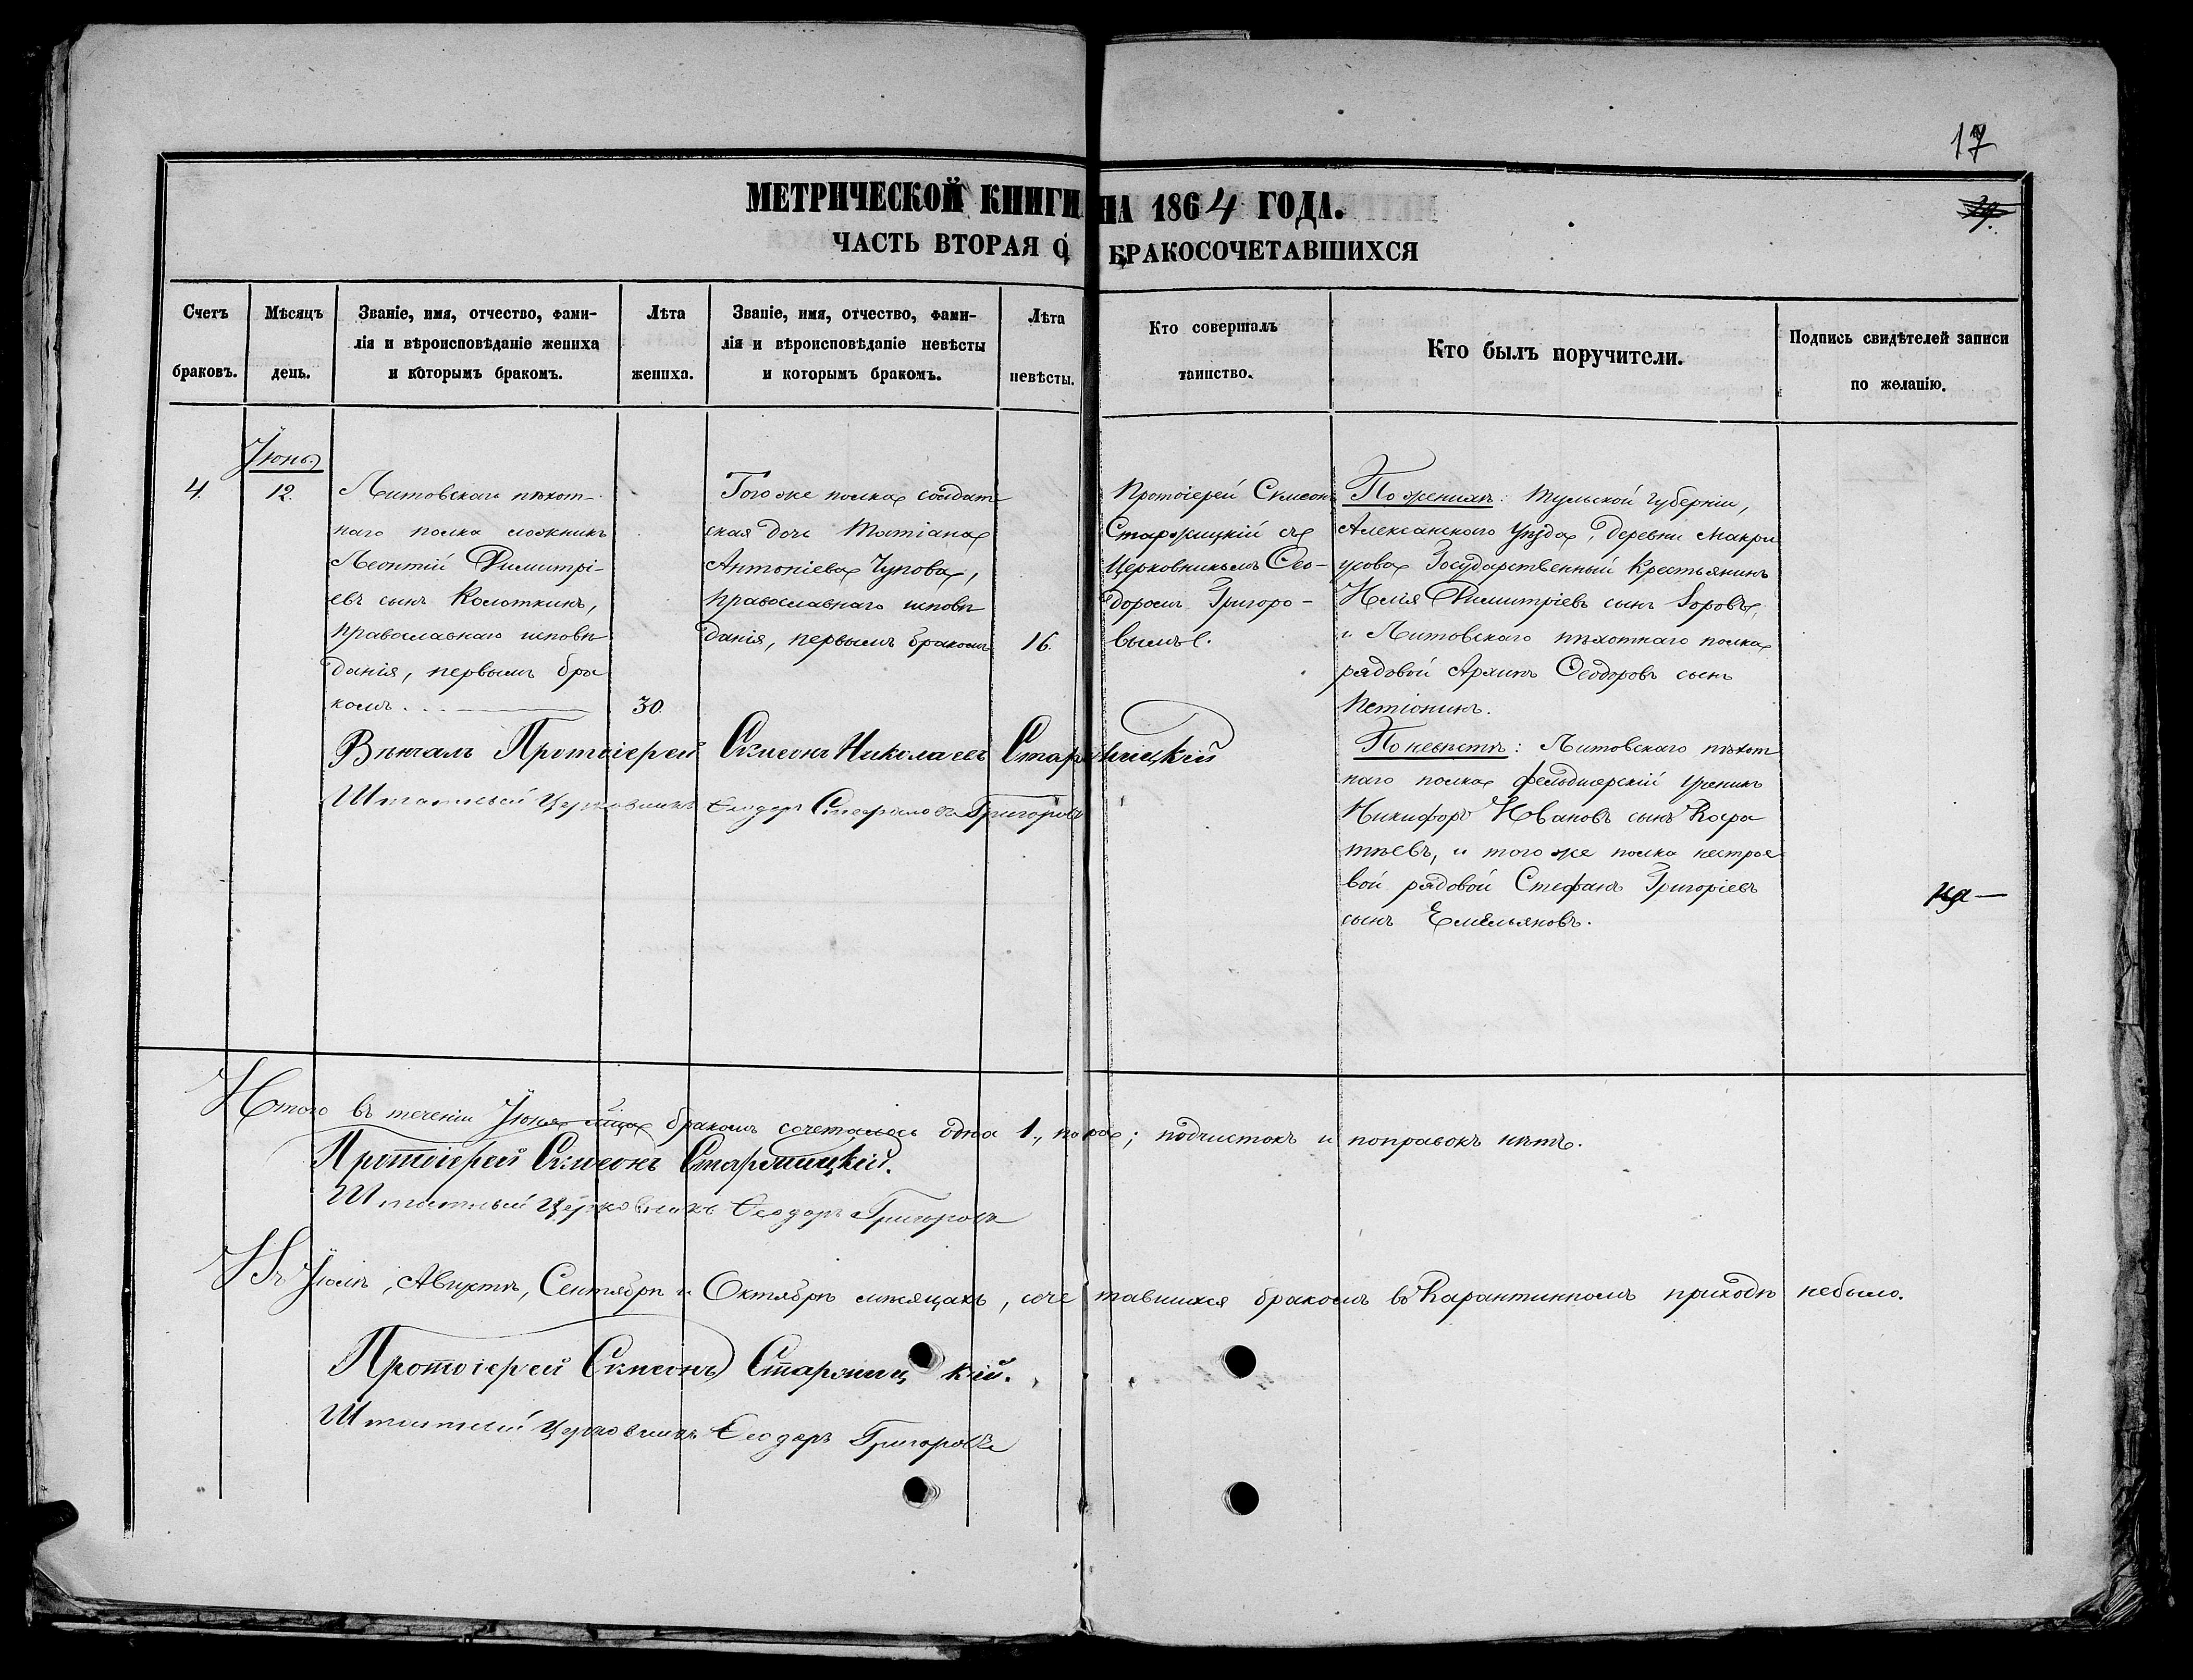 17
МЕТРИЧЕСКОЙ КНИГИ НА 1864 ГОДА.
39.
ЧАСТЬ ВТОРАЯ О БРАКОСОЧЕТАВШИХСЯ
Счетъ браковъ.
Мѣсяцъ день.
Званіе, имя, отчество, фами-
лія и вѣроисповѣданіе жениха
и которымъ бракомъ.
Лѣта жениха.
Званіе, имя, отчество, фами-
лія и вѣроисповѣданіе невѣсты
и которымъ бракомъ.
Лѣта невѣсты.
Кто совершалъ
таинство.
Кто былъ поручители.
Подпись свидѣтелей записи
по желанію.
4.
Іюнь.
12.
Литовскаго пѣхот-
наго полка ложникъ
Леонтій Димитрі-
евъ сынъ Колоткинъ,
православнаго исповѣ
данія, первымъ бра
комъ.
30.
Того же полка солдат
ская дочь Татіана
Антоніева Чупова,
православнаго исповѣ
данія, первымъ бракомъ
16.
Протоіерей Симеонъ
Старжицкій съ
Церковникомъ Ѳео-
доромъ Григоро-
вымъ.
По женихѣ: Тульской губерніи,
Алексинскаго Уѣзда, деревни Макри
усова Государственный Крестьянинъ
Илія Димитріевъ сынъ Боровъ,
и Литовскаго пѣхотнаго полка
рядовой Архипъ Ѳеодоровъ сынъ
Петіонинъ.
По невѣстѣ: Литовскаго пѣхот
наго полка фельдшерскій ученикъ
Никифоръ Ивановъ сынъ Кодра
тьевъ, и того же полка нестрое
вой рядовой Стефанъ Григоріевъ
сынъ Емельяновъ.
Вѣнчалъ Протоіерей Симеонъ Николаевъ Старжицкій
Штатный Церковникъ Ѳеодоръ Григоровъ
Итого въ теченіи Іюня мѣсяца бракомъ сочеталось одна 1., пара; подчистокъ и поправокъ нѣтъ.
Протоіерей Симеонъ Старжицкій.
Штатный Церковникъ Ѳеодоръ Григоровъ
Въ Іюлѣ, Августѣ, Сентябрѣ и Октябрѣ мѣсяцахъ, сочетавшихся бракомъ въ Карантинномъ приходѣ небыло.
Протоіерей Симеонъ Старжицкій.
Штатный Церковникъ Ѳеодоръ Григоровъ